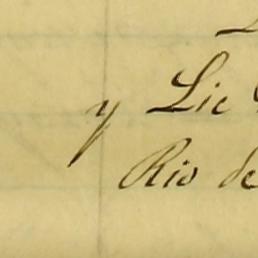 y Lic
Rio de